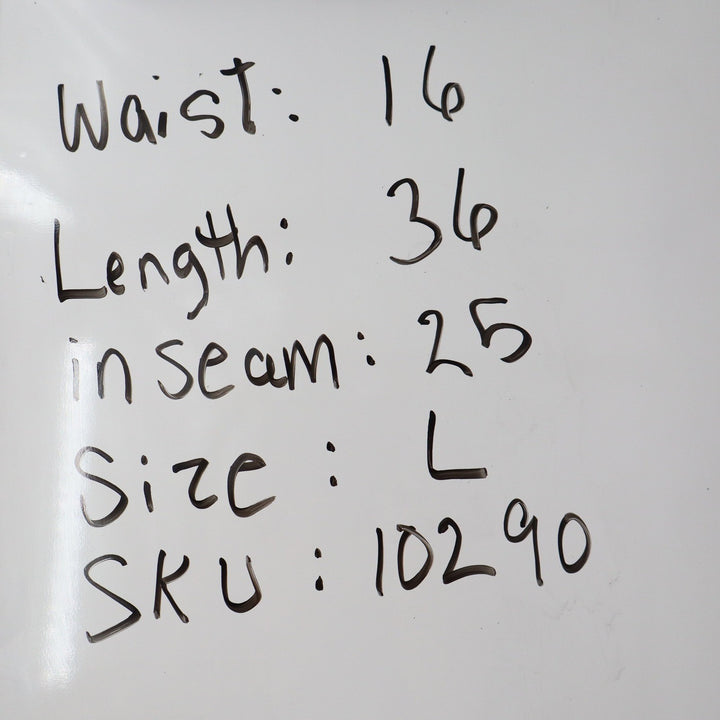 Waist: 16
Length: 36
in seam: 25
Size: L
SKU: 10290